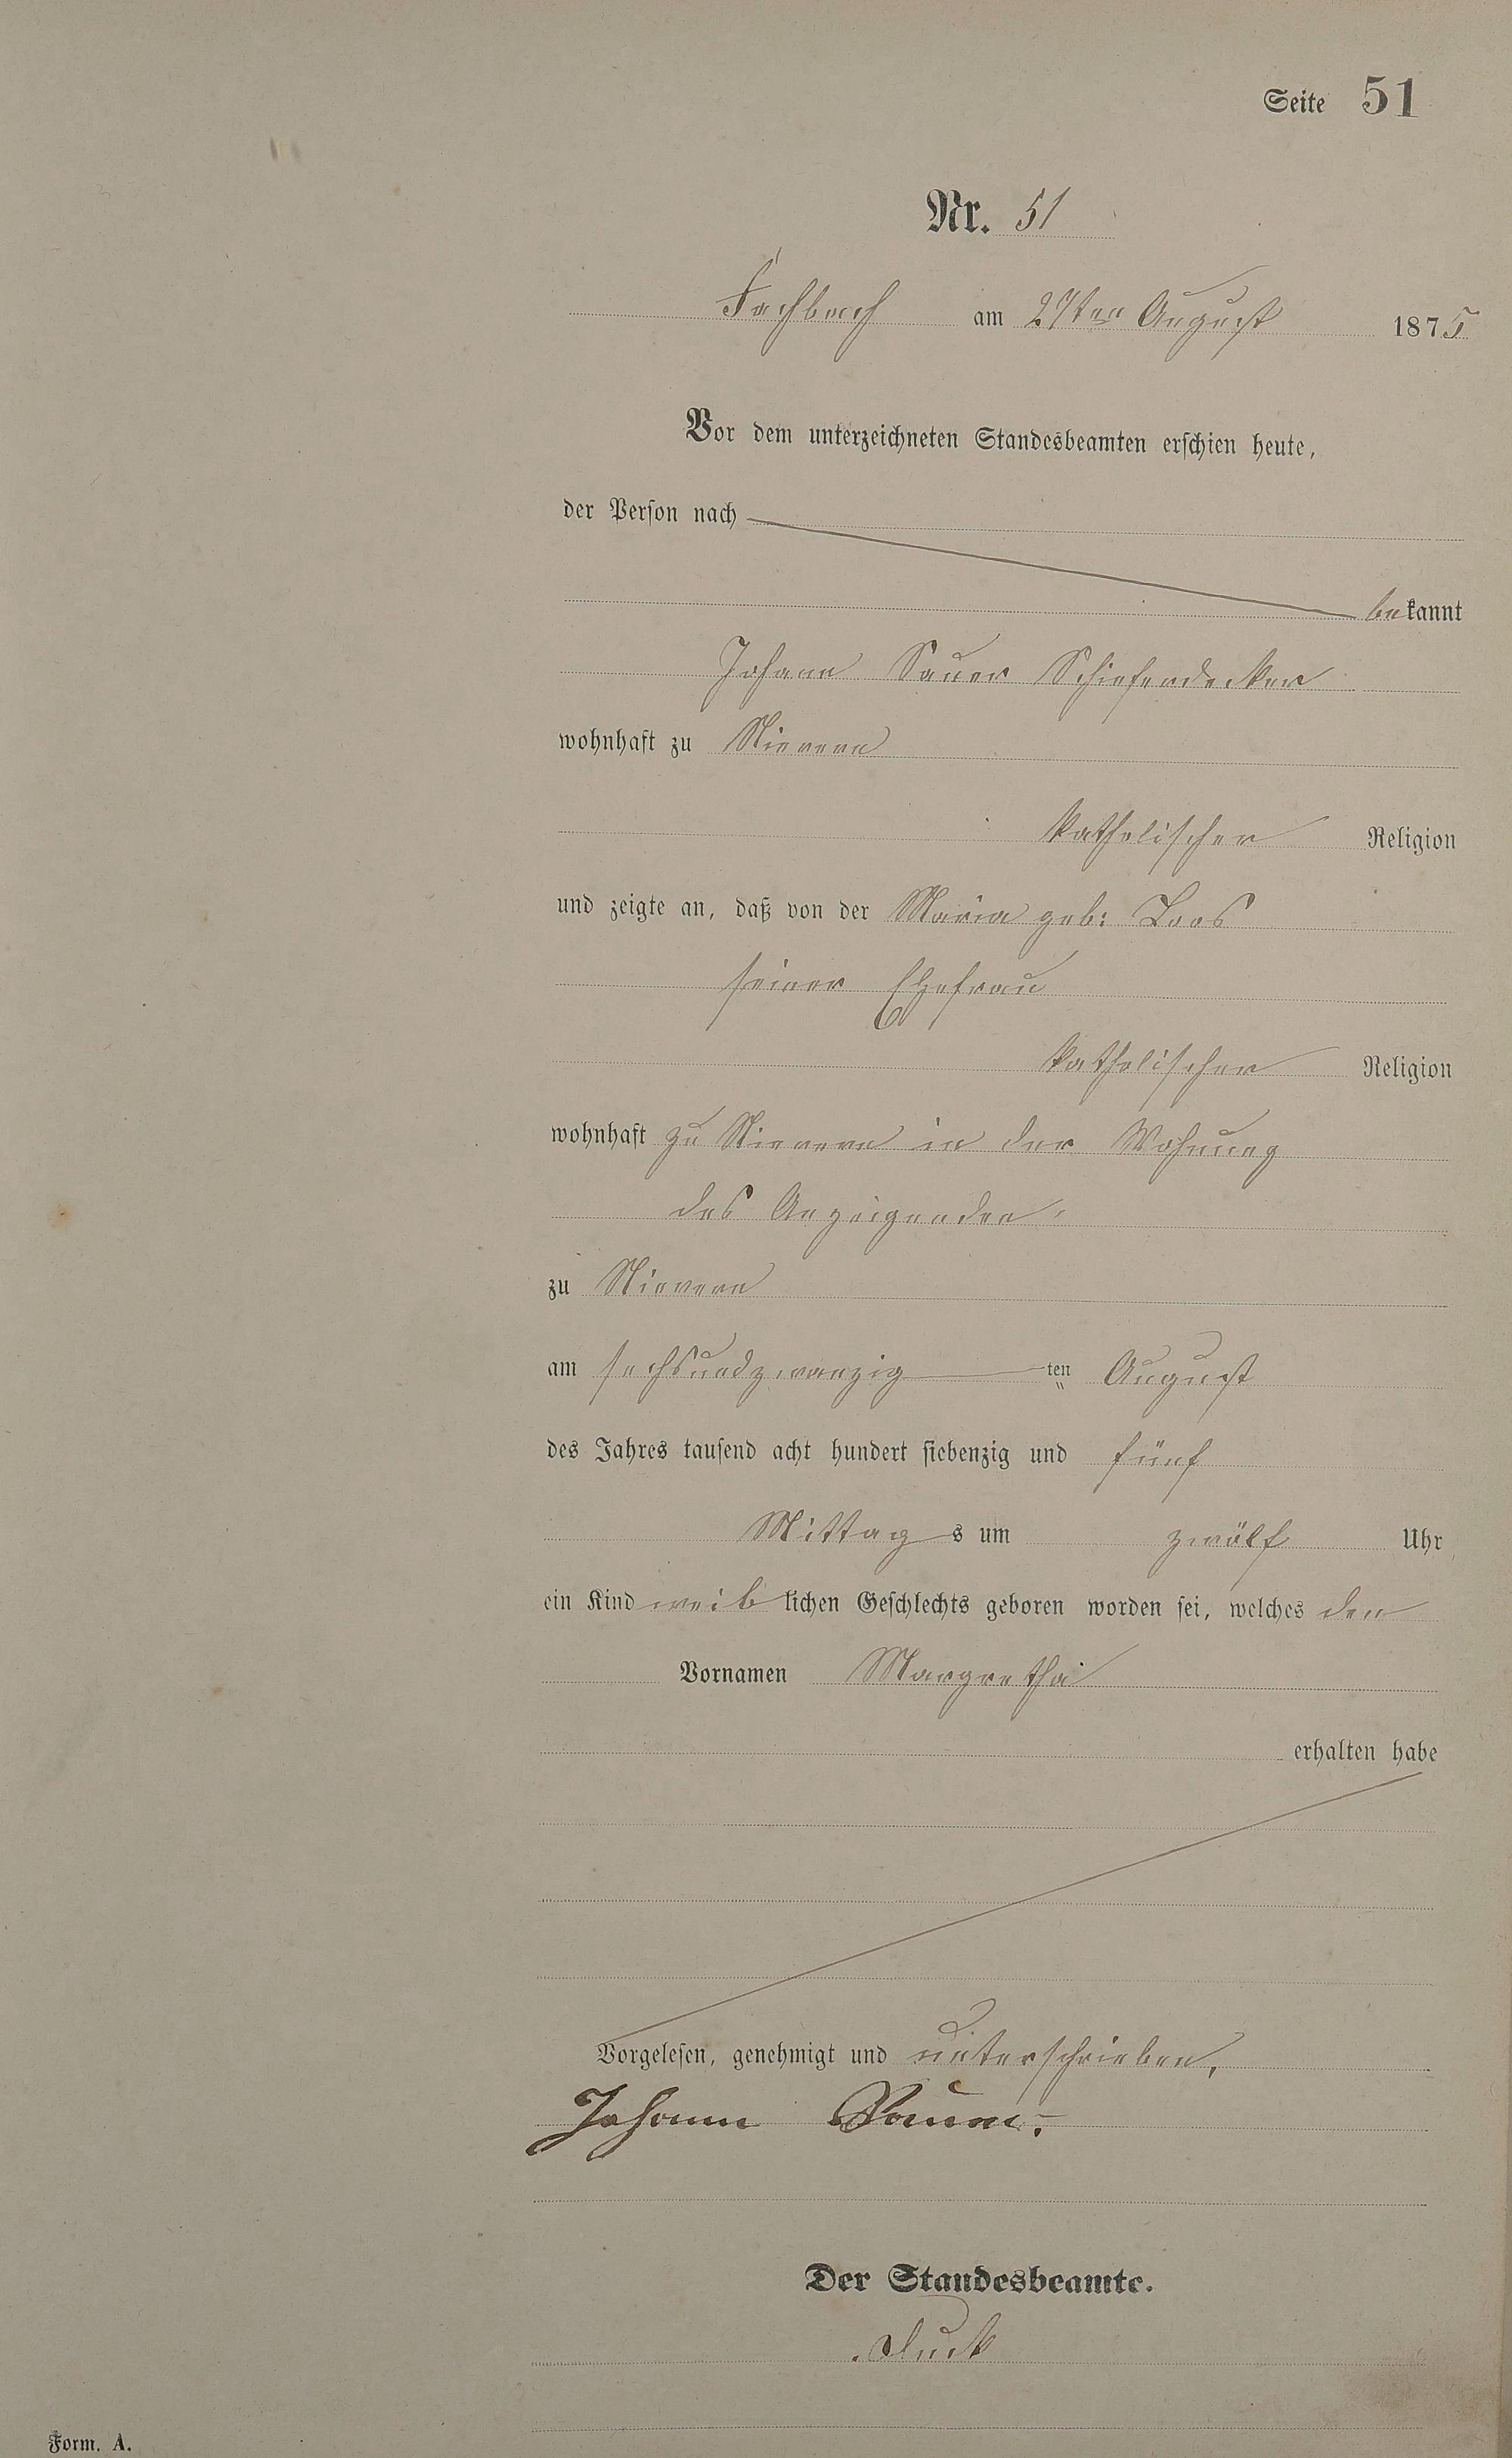 Seite 51
Nr. 51
Fachbach am 27ten August 1875
Vor dem unterzeichneten Standesbeamten erschien heute,
der Person nach
bekannt
Johann Sauer Schieferdecker
wohnhaft zu Nievern
katholischer Religion
und zeigte an, daß von der Maria geb: Loos
seiner Ehefrau
katholischer Religion
wohnhaft zu Nievern in der Wohnung
des Anzeigenden
zu Nievern
am sechsundzwanzig ten August
des Jahres tausend acht hundert siebenzig und fünf
Mittags um zwölf Uhr
ein Kind weiblichen Geschlechts geboren worden sei, welches den
Vornamen Margretha
erhalten habe
Vorgelesen, genehmigt und unterschrieben.
Johann Sauer.
Der Standesbeamte.
Form. A.